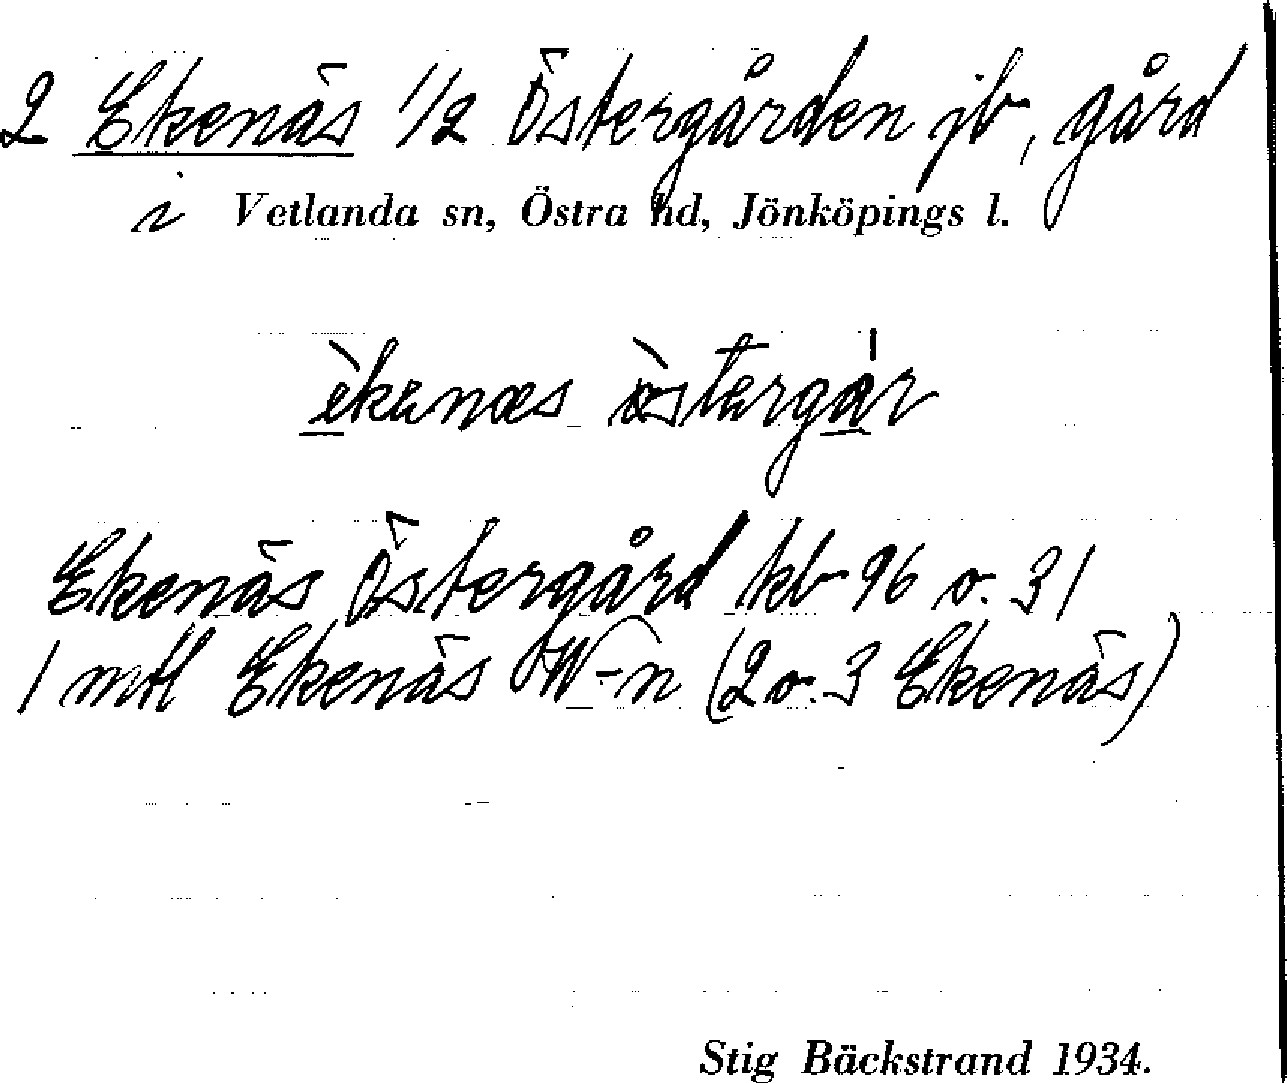 2 Ekenäs 1/2 Östergården jb, gård
i Vetlanda sn, Östra hd, Jönköpings l.
èkenæs östergár
Ekenäs Östergård kb 96 o. 31
1 mtl Ekenäs (2 o. 3 Ekenäs)
Stig Bäckstrand 1934.